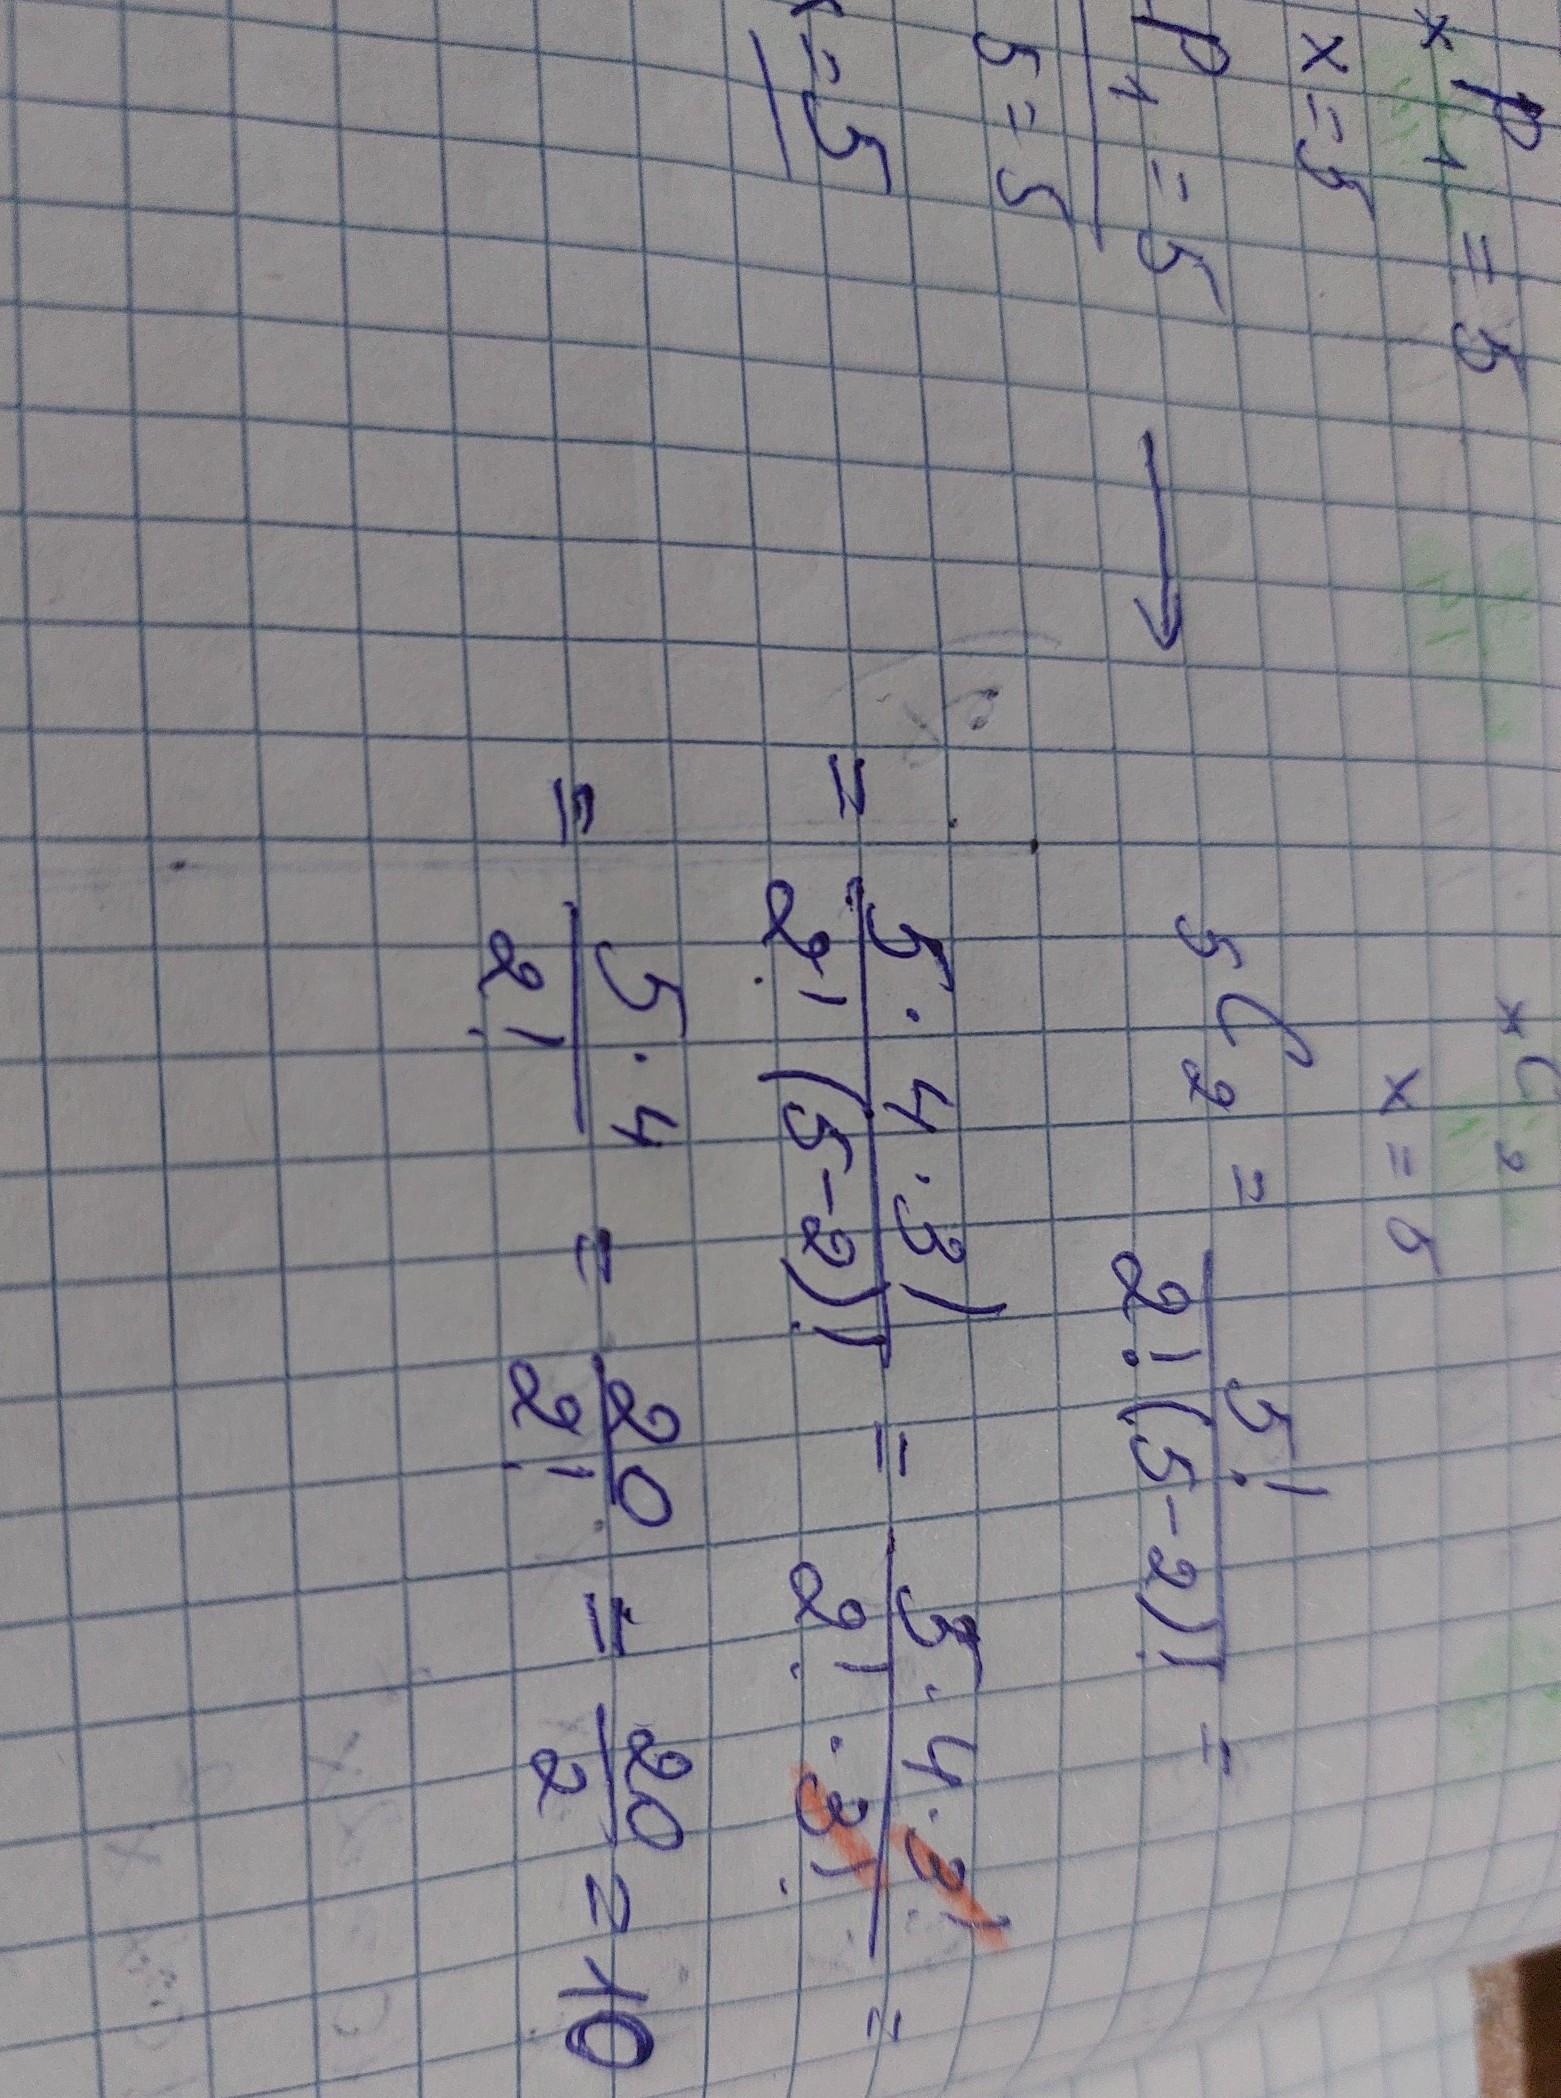 x P 1 = 5
x = 5
P 1 = 5
5 = 5
x = 5
x C 2
x = 5
5 C 2 = 5! / 2! (5-2)! =
= 5 · 4 · 3! / 2! (5-2)! = 5 · 4 · 3! / 2! · 3! =
= 5 · 4 / 2! = 20 / 2! = 20 / 2 = 10